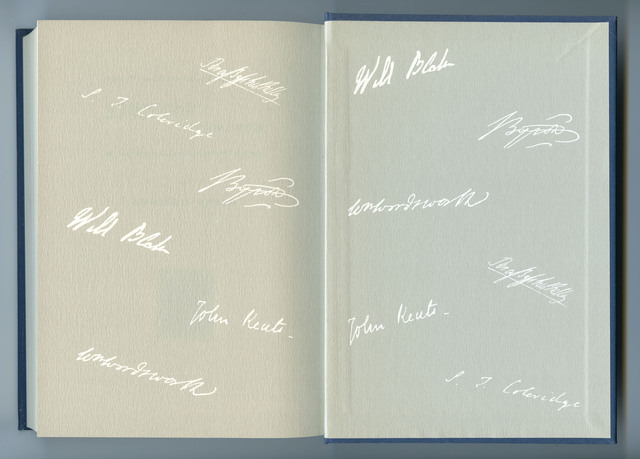 Percy B Shelley
S. T. Coleridge
Byron
Will Blake
John Keats -
Wm Wordsworth
Will Blake
Byron
Wm Wordsworth
Percy B Shelley
John Keats -
S. T. Coleridge